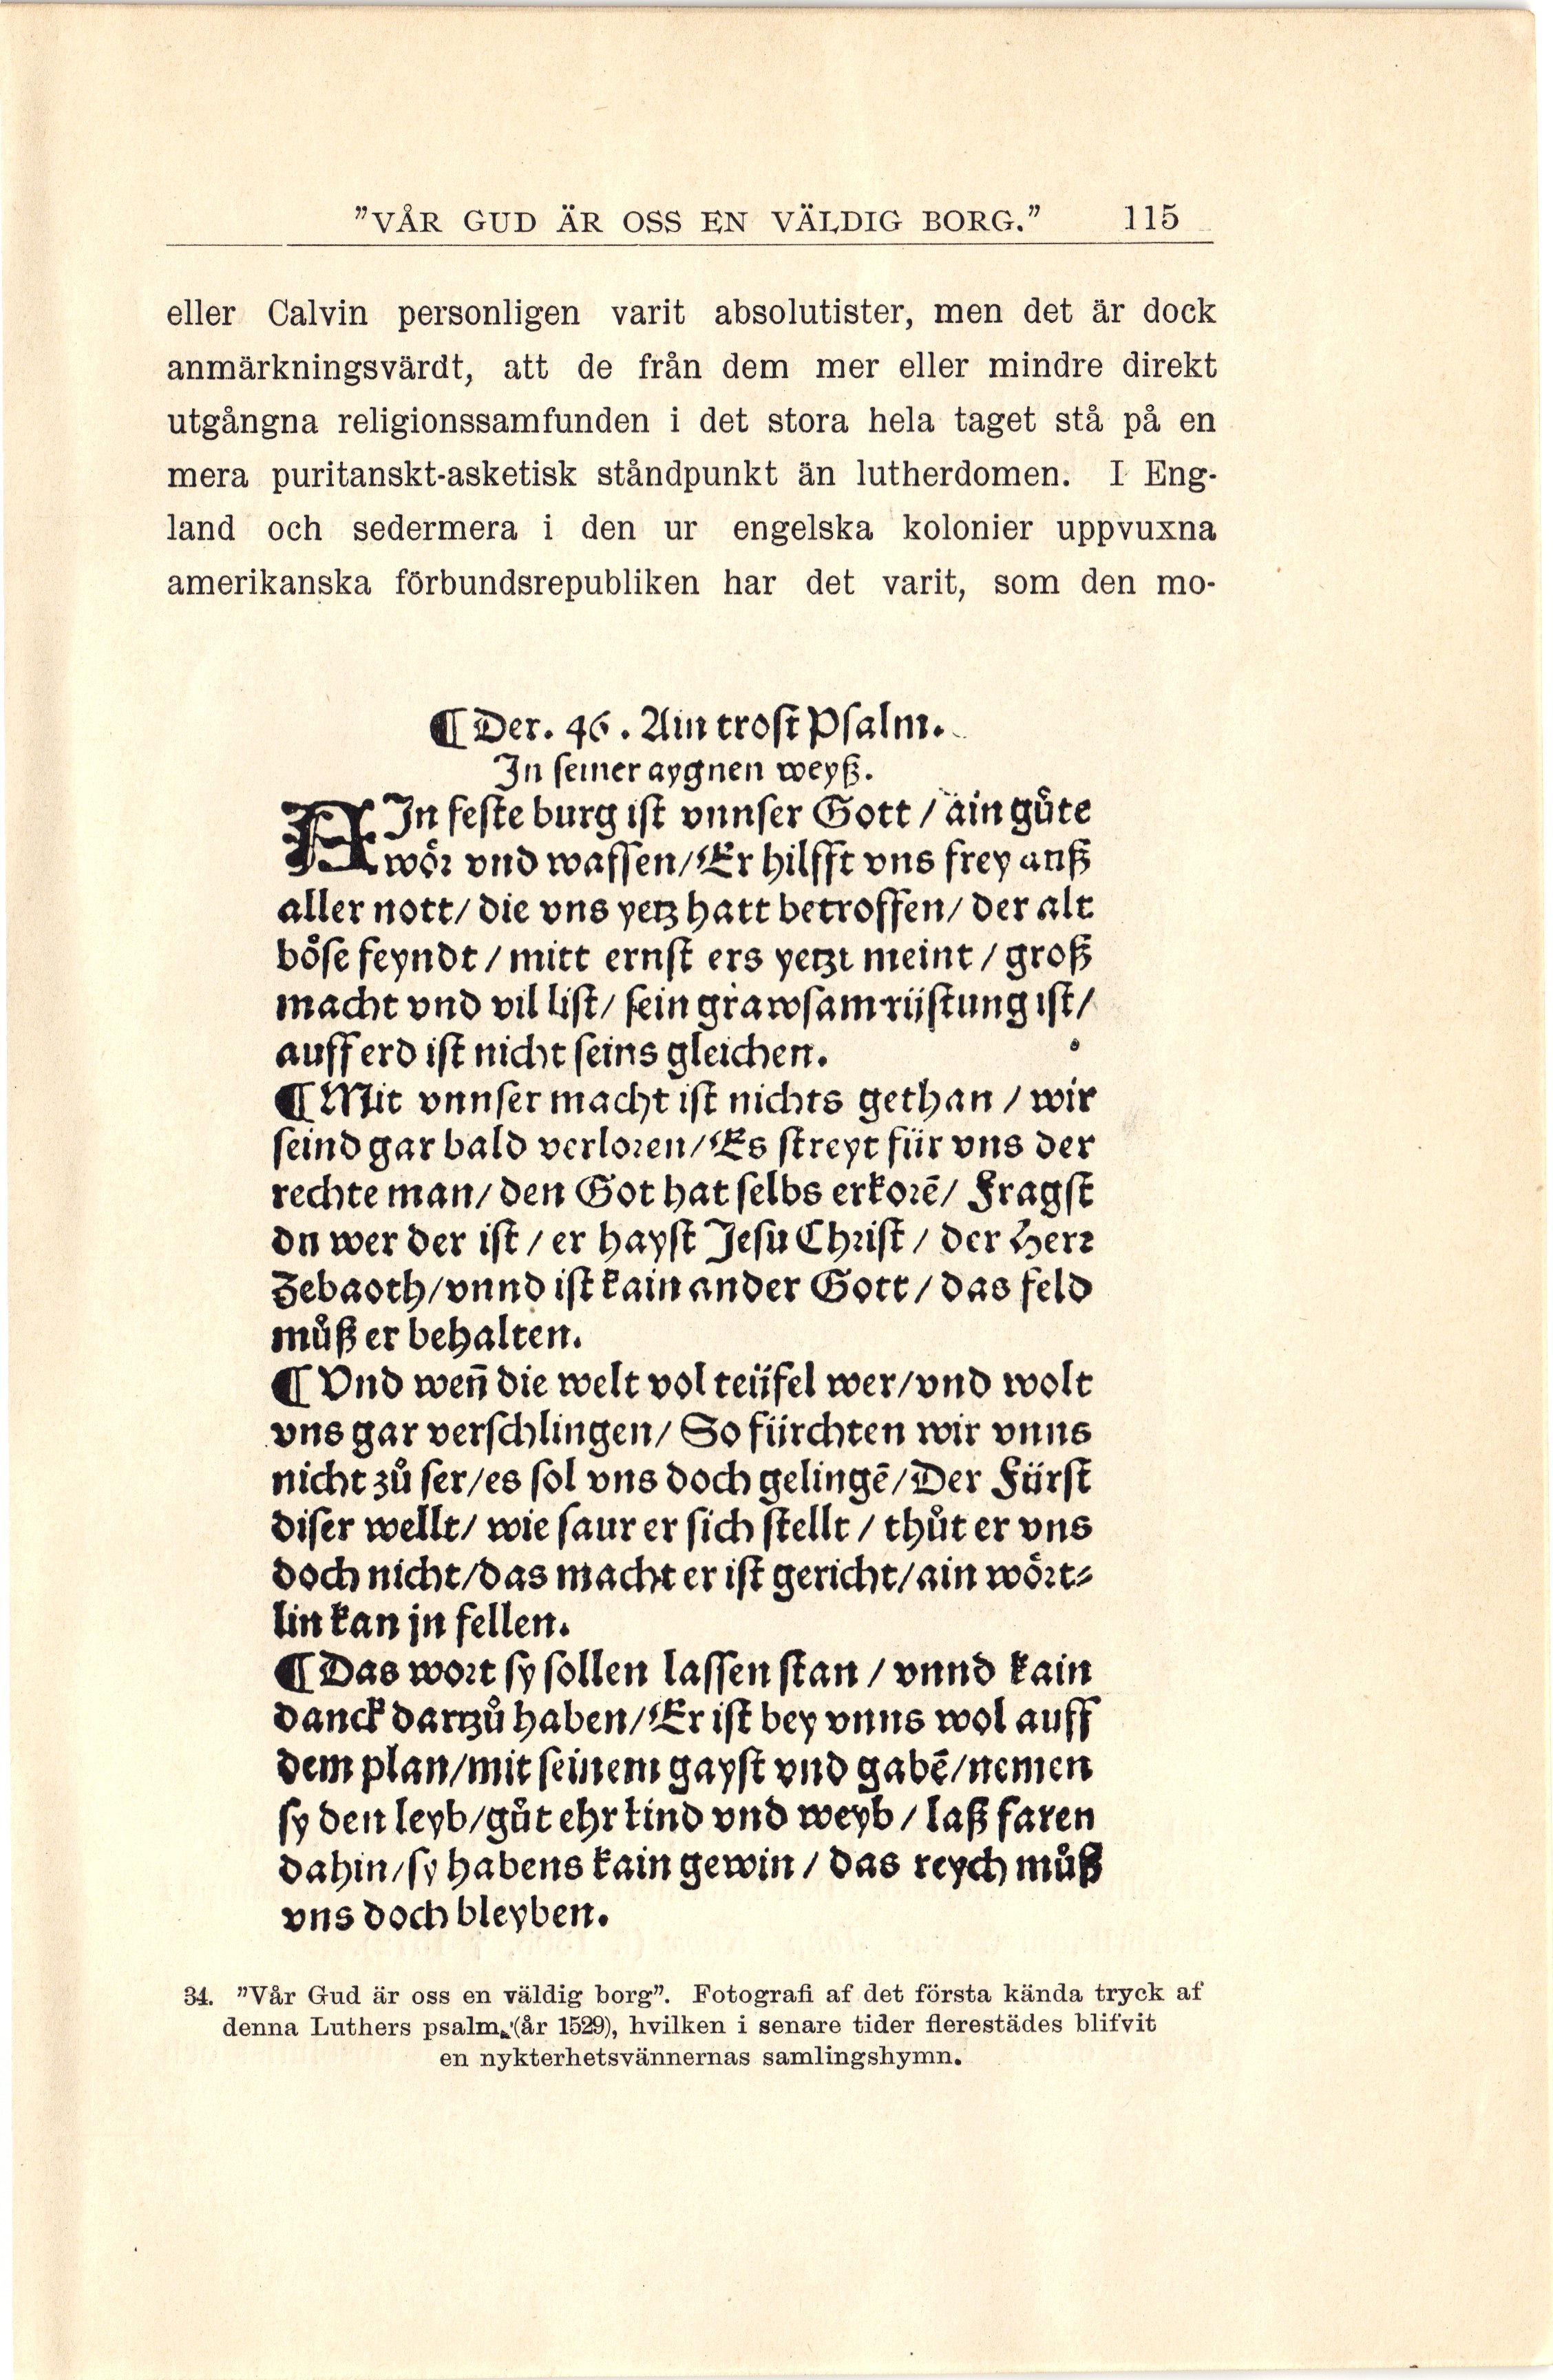 ”VÅR GUD ÄR OSS EN VÄLDIG BORG.” 115
eller Calvin personligen varit absolutister, men det är dock
anmärkningsvärdt, att de från dem mer eller mindre direkt
utgångna religionssamfunden i det stora hela taget stå på en
mera puritanskt-asketisk ståndpunkt än lutherdomen. I Eng-
land och sedermera i den ur engelska kolonier uppvuxna
amerikanska förbundsrepubliken har det varit, som den mo-
¶ Der. 46. Ain trost Psalm.
In seiner aygnen weyß.
AIn feste burg ist vnnser Gott / ain gůte
wör vnd waffen/Er hilfft vns frey auß
aller nott/ die vns yetz hatt betroffen/ der alt
böse feyndt / mitt ernst ers yetzt meint / groß
macht vnd vil list/ sein grawsam rüstung ist/
auff erd ist nicht seins gleichen.
¶ Mit vnnser macht ist nichts gethan / wir
seind gar bald verloren/Es streyt für vns der
rechte man/ den Got hat selbs erkorē/ Fragst
du wer der ist / er hayst Jesu Christ / der Herr
Zebaoth/vnnd ist kain ander Gott / das feld
můß er behalten.
¶ Vnd weñ die welt vol teüfel wer/vnd wolt
vns gar verschlingen/ So fürchten wir vnns
nicht zů ser/es sol vns doch gelingē/Der Fürst
diser wellt/ wie saur er sich stellt / thůt er vns
doch nicht/das macht er ist gericht/ain wört⸗
lin kan jn fellen.
¶ Das wort sy sollen lassen stan / vnnd kain
danck dartzů haben/Er ist bey vnns wol auff
dem plan/mit seinem gayst vnd gabē/nemen
sy den leyb/gůt ehr kind vnd weyb / laß faren
dahin/sy habens kain gewin / das reych můß
vns doch bleyben.
34. ”Vår Gud är oss en väldig borg”. Fotografi af det första kända tryck af
denna Luthers psalm (år 1529), hvilken i senare tider flerestädes blifvit
en nykterhetsvännernas samlingshymn.